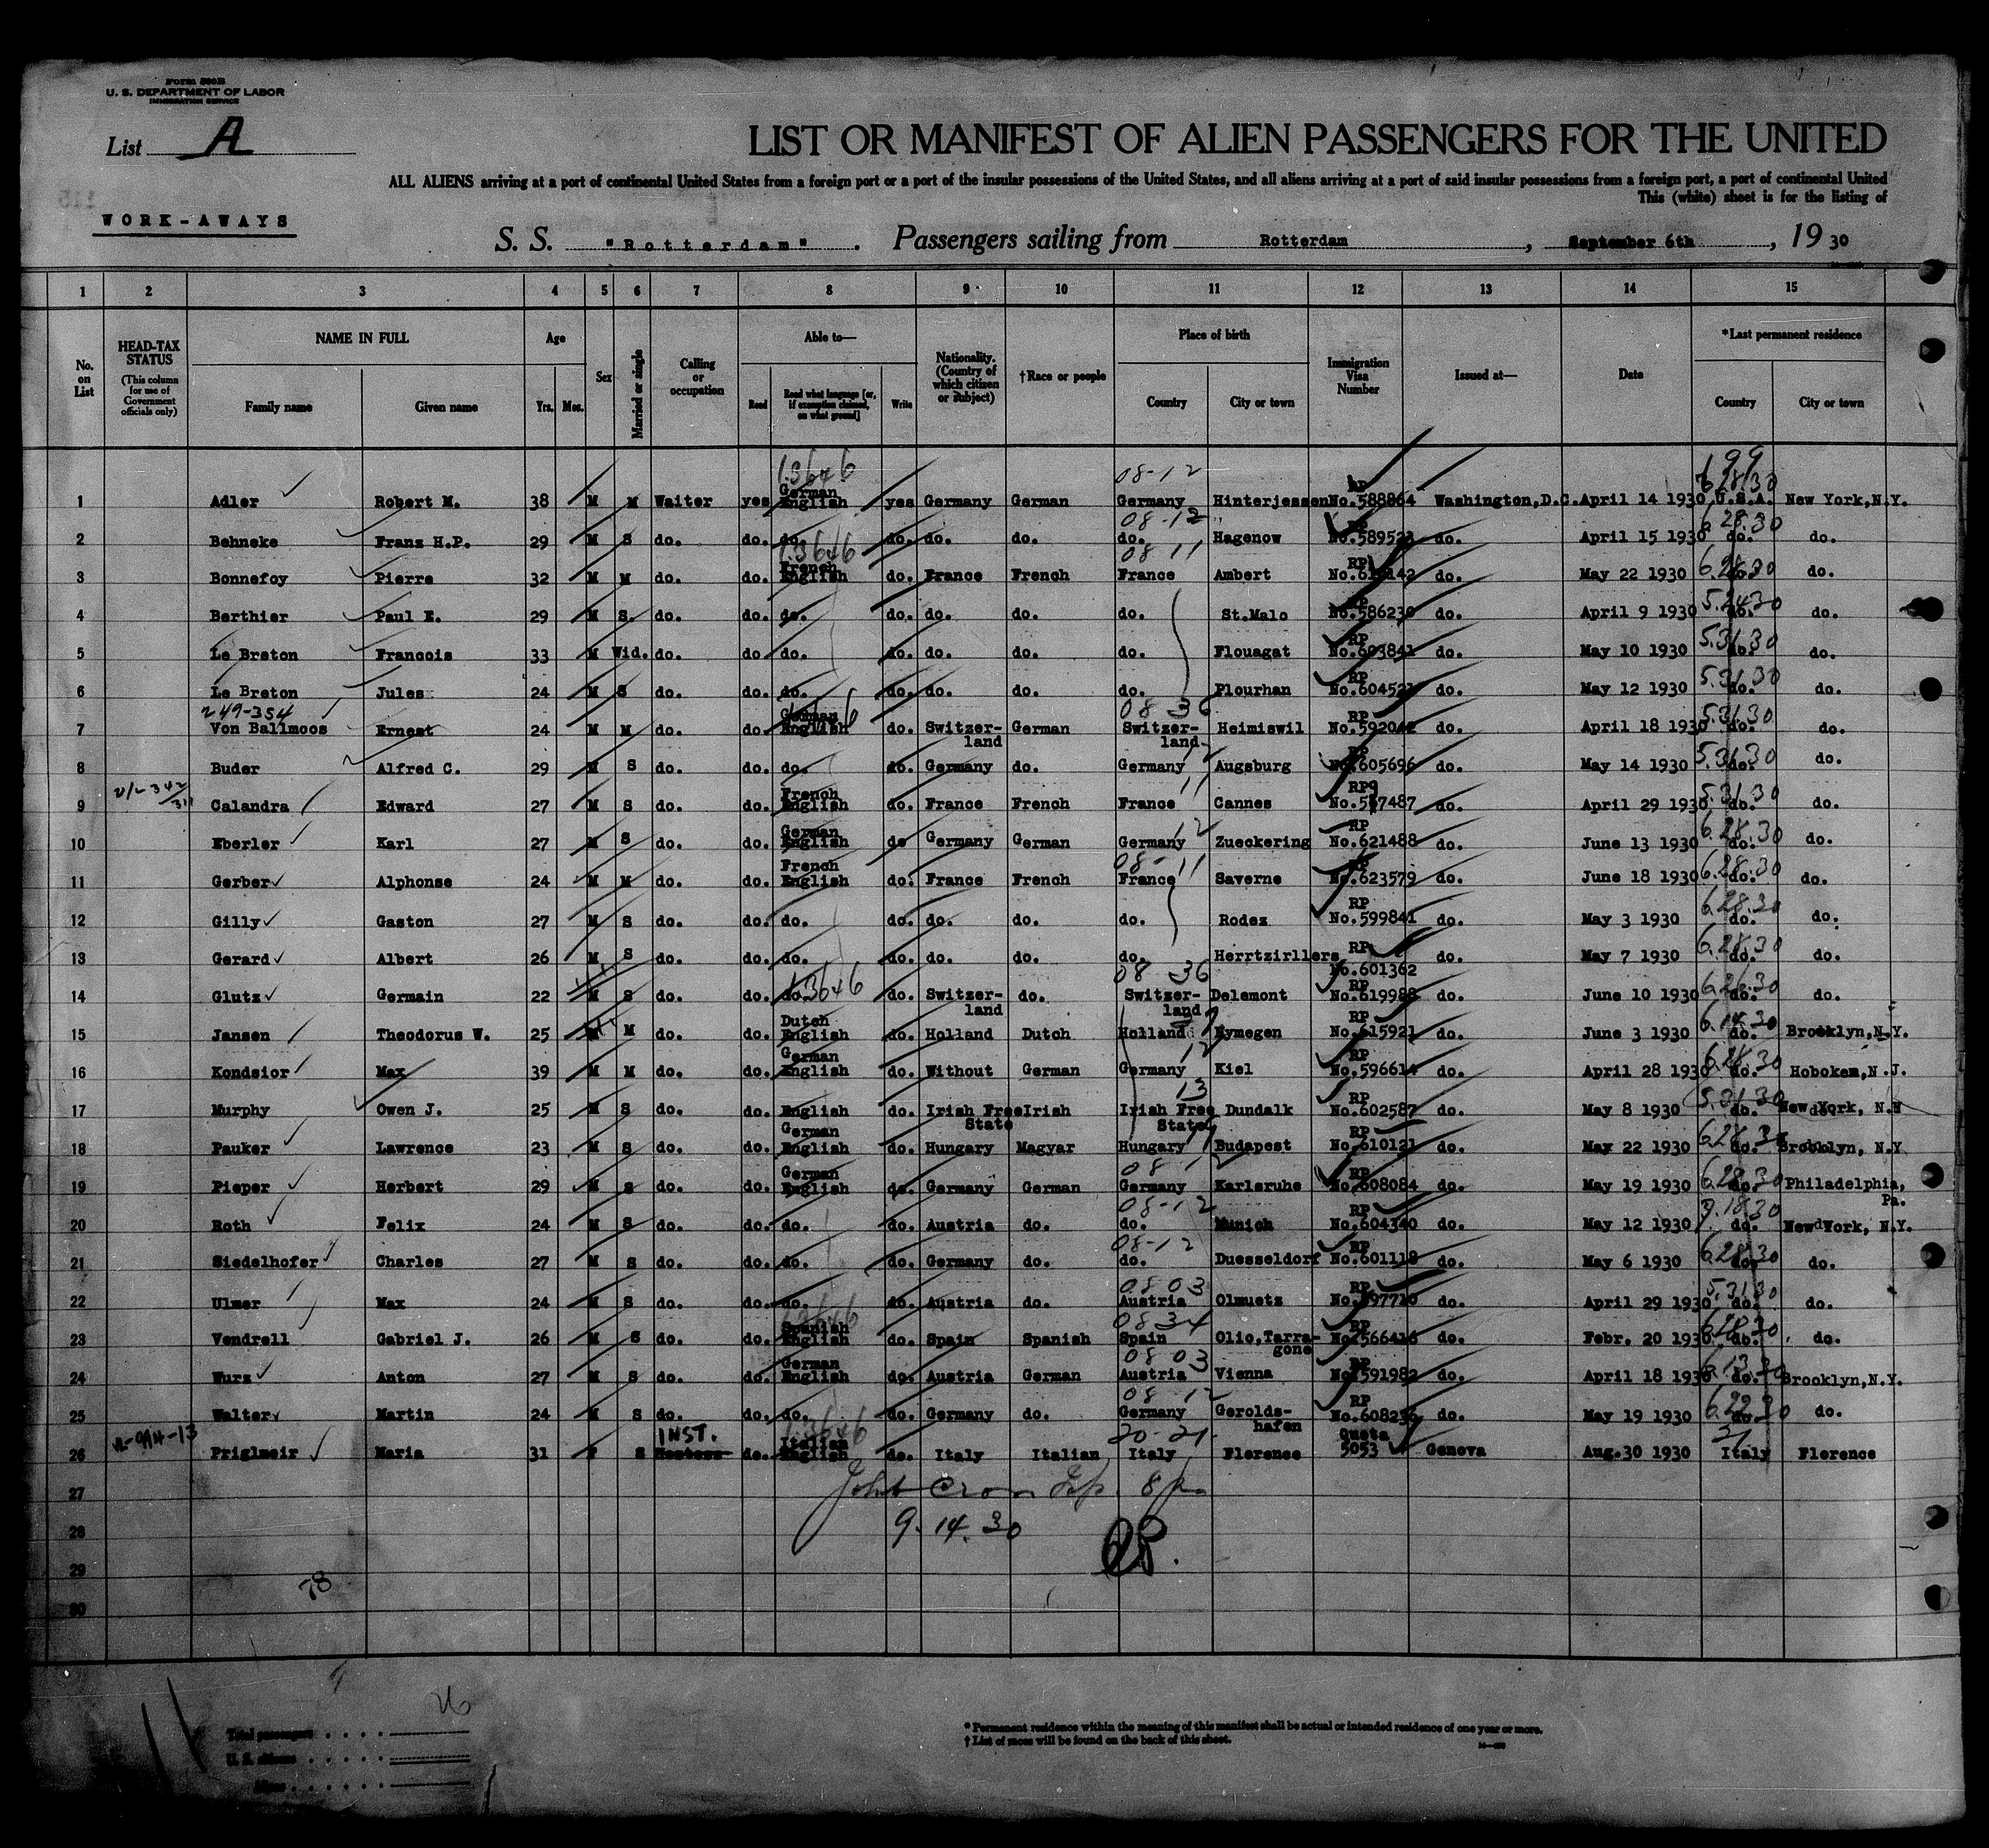 Form 500B
U. S. DEPARTMENT OF LABOR
IMMIGRATION SERVICE
List A
LIST OR MANIFEST OF ALIEN PASSENGERS FOR THE UNITED
ALL ALIENS arriving at a port of continental United States from a foreign port or a port of the insular possessions of the United States, and all aliens arriving at a port of said insular possessions from a foreign port, a port of continental United
This (white) sheet is for the listing of
WORK-AWAYS
S. S. "Rotterdam". Passengers sailing from Rotterdam, September 6th, 19 30
1 2 3 4 5 6 7 8 9 10 11 12 13 14 15
No. on List
HEAD-TAX STATUS (This column for use of Government officials only)
NAME IN FULL Family name Given name
Age Yrs. Mos.
Sex
Married or single
Calling or occupation
Able to— Read Read what language [or, if exemption claimed, on what ground] Write
Nationality. (Country of which citizen or subject)
†Race or people
Place of birth Country City or town
Immigration Visa Number
Issued at—
Date
*Last permanent residence Country City or town
13646 08-12 199 6.28.30
1 Adler Robert M. 38 M M Waiter yes German English yes Germany German Germany Hinterjessen RP No.588864 Washington,D.C. April 14 1930 U.S.A. New York,N.Y.
08-12 6.28.30
2 Behneke Franz H.P. 29 M S do. do. do. do. do. do. do. Hagenow RP do. April 15 1930 do. do.
13646 08 11 6.28.30
3 Bonnefoy Pierre 32 M M do. do. French English do. France French France Ambert RP do. May 22 1930 do. do.
5.24.30
4 Berthier Paul E. 29 M S. do. do. do. do. do. do. do. St.Malo RP No.586230 do. April 9 1930 do. do.
5.31.30
5 Le Breton Francois 33 M Wid. do. do do. do. do. do. do. Plouagat RP No.603841 do. May 10 1930 do. do.
5.31.30
6 Le Breton Jules 24 M S do. do. do. do. do. do. do. Plourhan RP do. May 12 1930 do. do.
249-354 08 36 5.31.30
7 Von Ballmoos Ernest 24 M M do. do. German English do. Switzerland German Switzerland Heimiswil RP No.592042 do. April 18 1930 do. do.
12 5.31.30
8 Buder Alfred C. 29 M S do. do. do. do. Germany do. Germany Augsburg RP No.605696 do. May 14 1930 do. do.
11 5.31.30
9 Calandra Edward 27 M S do. do. French English do. France French France Cannes RP do. April 29 1930 do. do.
12 6.28.30
10 Eberler Karl 27 M S do. do. German English do Germany German Germany Zueckering RP No.621488 do. June 13 1930 do. do.
08-11 6.28.30
11 Gerber Alphonse 24 M M do. do. French English do. France French France Saverne RP No.623579 do. June 18 1930 do. do.
6.28.30
12 Gilly Gaston 27 M S do. do. do. do. do. do. do. Rodez RP No.599841 do. May 3 1930 do. do.
6.28.30
13 Gerard Albert 26 M S do. do. do. do. do. do. do. Herrtzirllers RP No.601362 do. May 7 1930 do. do.
13646 08 36 6.26.30
14 Glutz Germain 22 M S do. do. do. do. Switzerland do. Switzerland Delemont RP No.619988 do. June 10 1930 do. do.
6.14.30
15 Jansen Theodorus W. 25 M M do. do. Dutch English do. Holland Dutch Holland Nymegen RP No.615921 do. June 3 1930 do. Brooklyn,N.Y.
12 6.28.30
16 Kondsior Max 39 M M do. do. German English do. Without German Germany Kiel RP No.596614 do. April 28 1930 do. Hoboken,N.J.
13 5.31.30
17 Murphy Owen J. 25 M S do. do. English do. Irish Free State Irish Irish Free State Dundalk RP No.602587 do. May 8 1930 do. New York, N.
6.28.30
18 Pauker Lawrence 23 M S do. do. German English do. Hungary Magyar Hungary Budapest RP No.610121 do. May 22 1930 do. Brooklyn, N.Y
08-12 6.28.30
19 Pieper Herbert 29 M S do. do. German English do. Germany German Germany Karlsruhe RP No.608084 do. May 19 1930 do. Philadelphia, Pa.
08-12 18.30
20 Roth Felix 24 M S do. do. do. do. Austria do. do. Munich RP No.604340 do. May 12 1930 do. New York, N.Y.
08-12 6.28.30
21 Siedelhofer Charles 27 M S do. do. do. do. Germany do. do. Duesseldorf RP No.601118 do. May 6 1930 do. do.
08 03 5.31.30
22 Ulmer Max 24 M S do. do. do. do. Austria do. Austria Olmuetz RP No.597710 do. April 29 1930 do. do.
13646 08 34
23 Vendrell Gabriel J. 26 M S do. do. Spanish English do. Spain Spanish Spain Olio,Tarragone RP No.566416 do. Febr. 20 1930 do. do.
08 03 6.13.30
24 Wurz Anton 27 M S do. do. German English do. Austria German Austria Vienna RP No.591982 do. April 18 1930 do. Brooklyn,N.Y.
08 12 6.22.30
25 Walter Martin 24 M S do. do. do. do. Germany do. Germany Geroldshafen RP No.608236 do. May 19 1930 do. do.
INST. 13646 20-21 21
26 Priglmeir Maria 31 F S Hostess do. Italian English do. Italy Italian Italy Florence Quota 5053 Genova Aug.30 1930 Italy Florence
27 John Cron Insp.
28 9.14.30
29
30
78
26
Total passengers
U. S. citizens
Aliens
* Permanent residence within the meaning of this manifest shall be actual or intended residence of one year or more.
† List of races will be found on the back of this sheet.